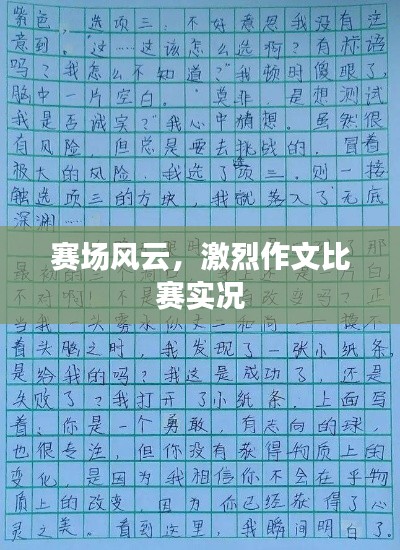 紫色，选项三：不好意思我没有注
意到。"这……这该怎么选啊？有标语
吗？我怎么不知道？"我顿时傻眼了，
脑中一片空白。"莫非，是想测试
我是否诚实？"我心中猜想。虽然很
有风险，但总是要去挑战的，冒着
极大的风险，我选了选项三。则一接
触选项三的方块，我就落入了无底
深渊……
赛场风云，激烈作文比
赛实况
着头脑之时，我发现了一张小纸条。
是给我的吗？我这是成功了，还是
失败了？我打开了小纸条，上面写
着：你是一个勇敢，有志向的球，
也很专注，但你没有获得物质上的
变化，是因为我相信你不会在乎物
质上的改变，因为你已经获得了心
灵之美。看到这里，我瞬间明白了。